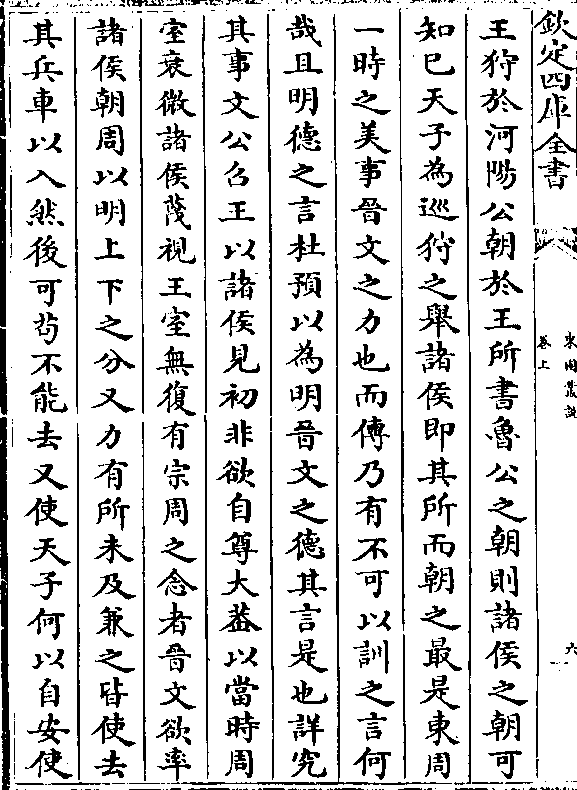 欽定四庫全書
東園叢說
卷上
六
王狩於河陽公朝於王所書魯公之朝則諸侯之朝可
知已天子為巡狩之舉諸侯即其所而朝之最是東周
一時之美事晉文之力也而傳乃有不可以訓之言何
哉且明德之言杜預以為明晉文之德其言是也詳究
其事文公召王以諸侯見初非欲自尊大葢以當時周
室衰微諸侯蔑視王室無復有宗周之念者晉文欲率
諸侯朝周以明上下之分又力有所未及兼之皆使去
其兵車以入然後可苟不能去又使天子何以自安使